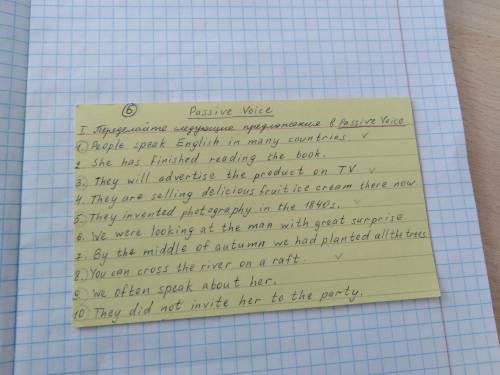 6 Passive Voice
I. Переделайте следующие предложения в Passive Voice
1. People speak English in many countries. v
2. She has finished reading she book.
3. They will advertise the product on TV. v
4. They are selling delicious fruit ice cream there now.
5. They invented photography in the 1840s. v
6. We were looking at the man with great surprise
7. By the middle of autumn we had planted all the trees.
8. You can cross the river on a raft. v
9. We often speak about her.
10. They did not invite her to the party.